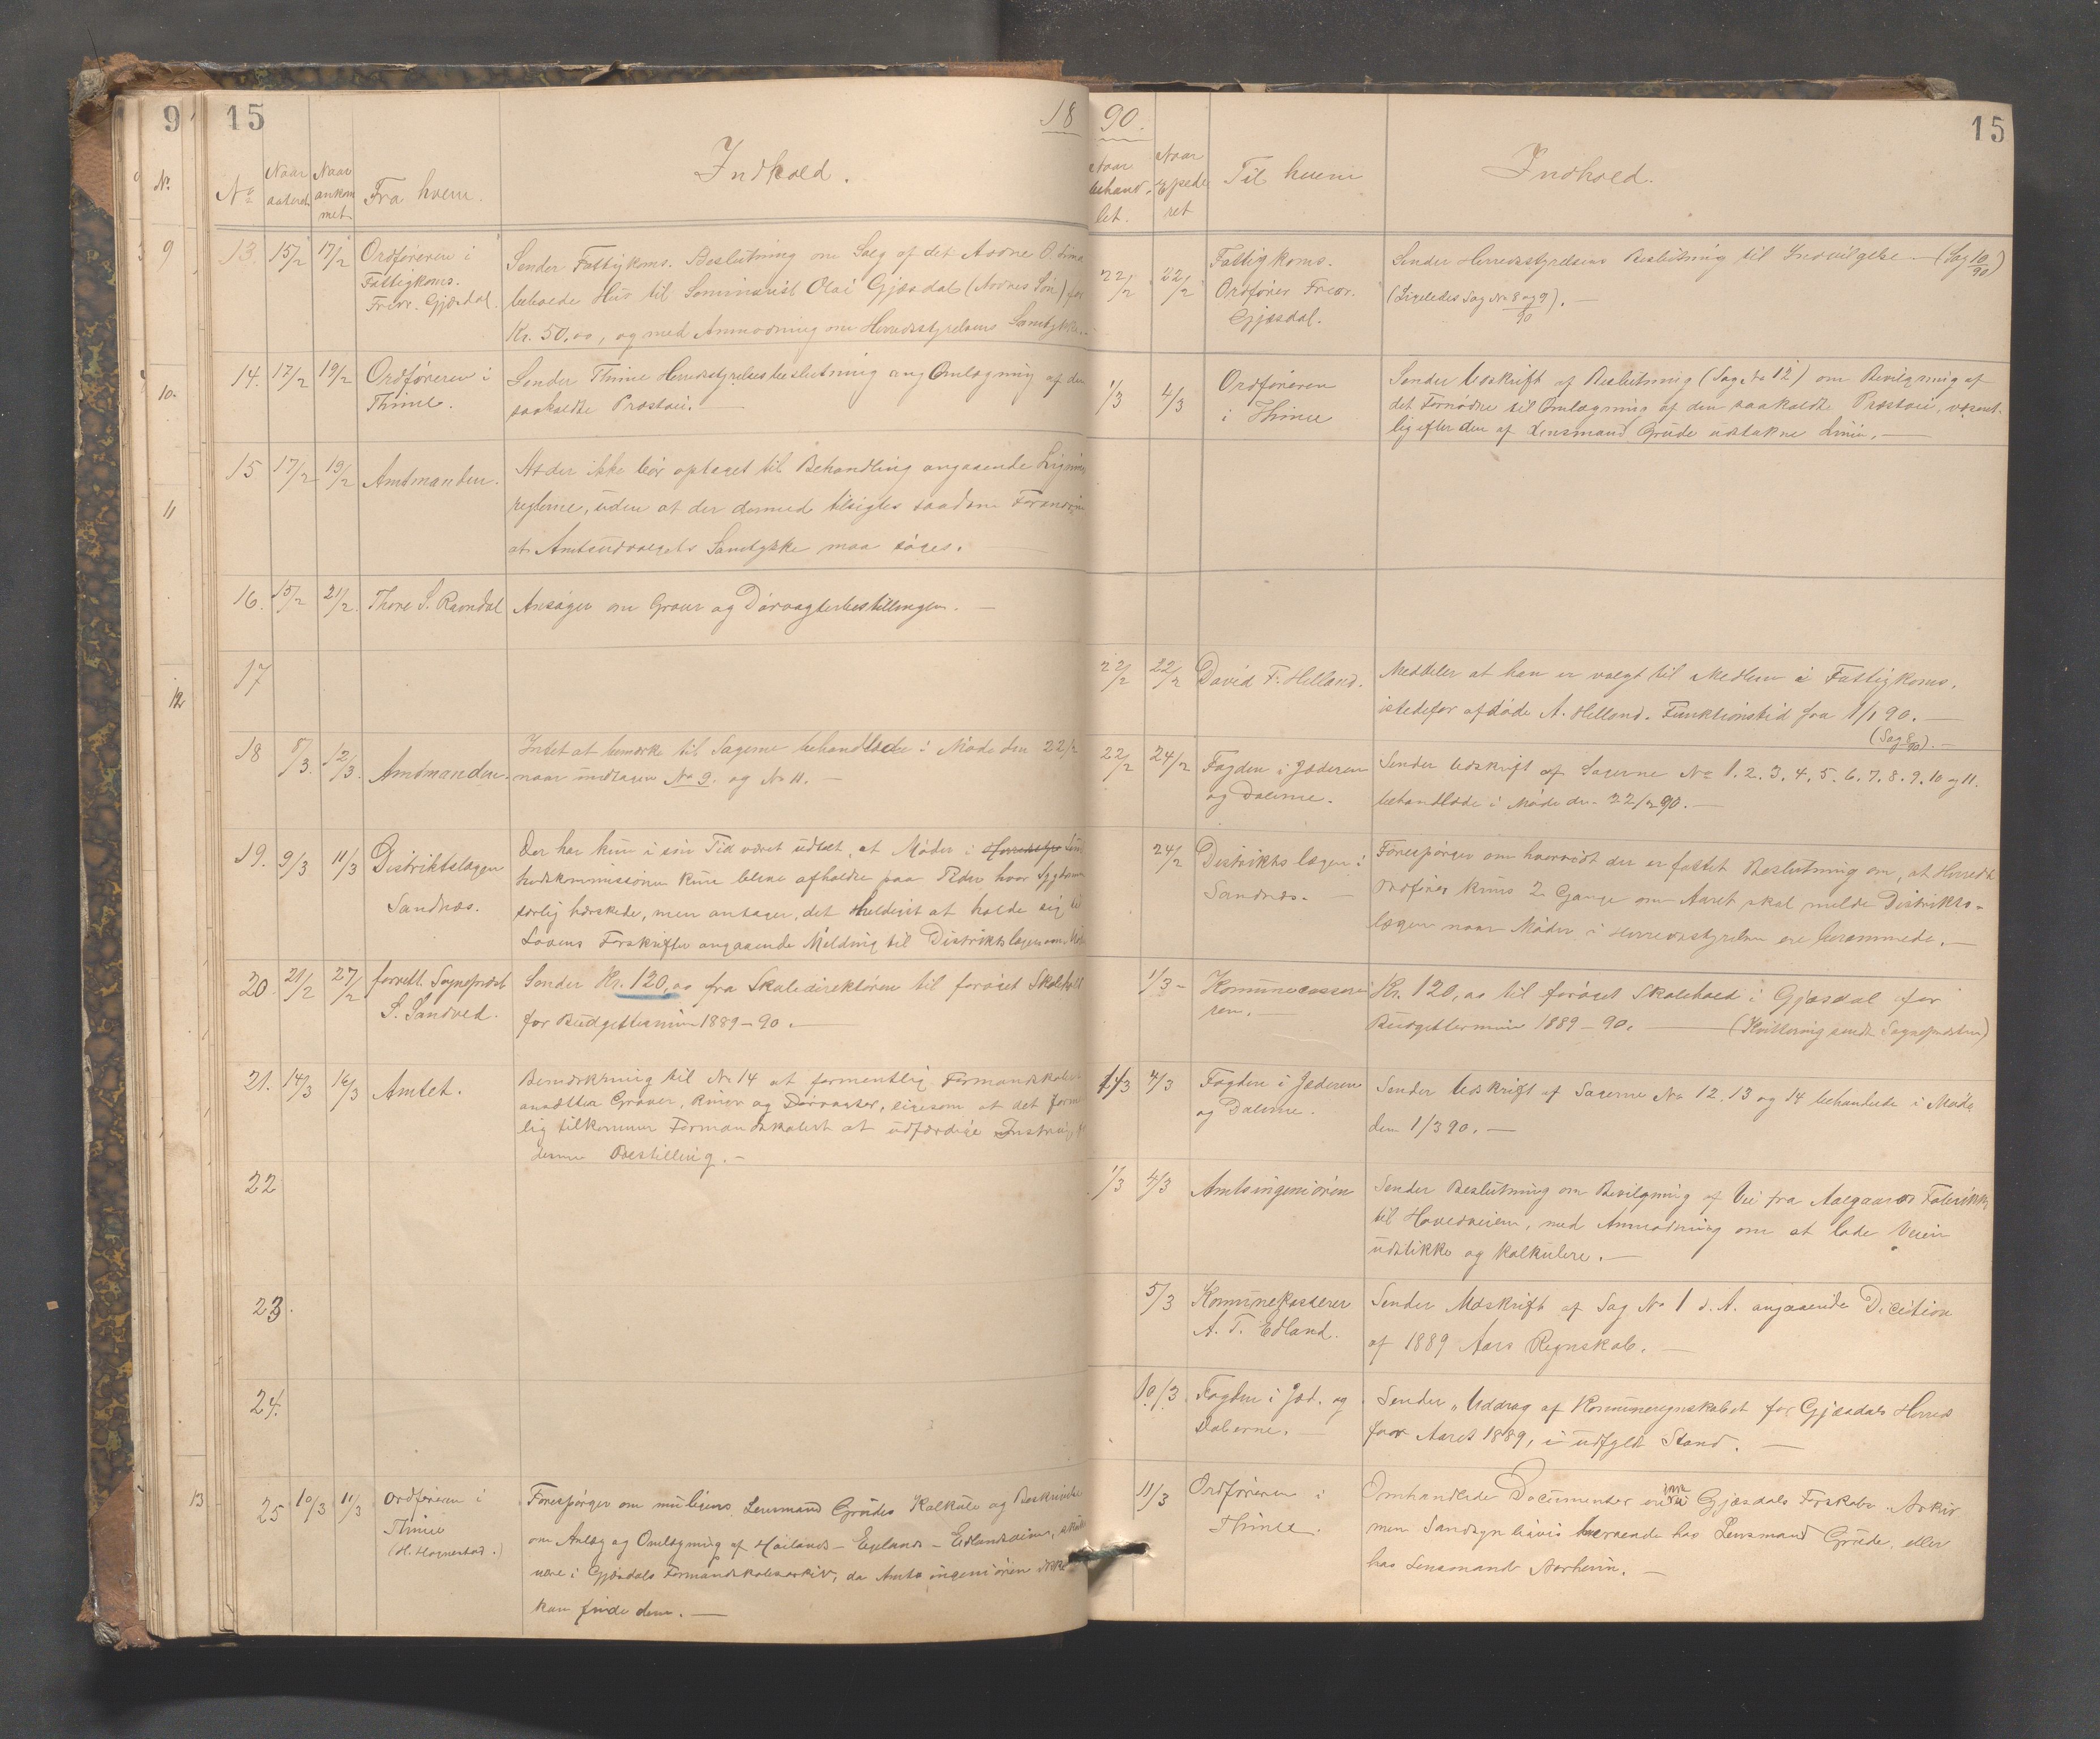 9
15
18
Nr.
No
Naar dateret
Naar ankommet
Fra hvem.
Indhold.
9
13.
15/2
17/2
Ordføreren i
Fattigkoms.
Fredr. Gjæsdal.
Sender Fattigkoms. Beslutning om Salg af det Arne O. Lima
beboede Hus til Seminarist Olai Gjæsdal (Arnes Søn) for
Kr. 50,00, og med Anmodning om Herredsstyrelsens Samtykke.
10.
14.
17/2
19/2
Ordføreren i
Thime.
Sender Thime Herredsstyrelsesbeslutning ang Omlægning af den
saakaldte Præstvei. —
11
15
17/2
19/2
Amtmanden.
At der ikke bør optaget til Behandling angaaende Lignings
reglerne, uden at der dermed tilsigtes saadan Forandring
at Amtsudvalgets Samtykke maa søges.
16.
15/2
21/2.
Thore S. Ravndal
Ansøger om Graver og Dørvogterbestillingen. —
12
17
18
8/3.
12/3.
Amtmanden.
Intet at bemærke til Sagerne behandlede i Møde den 22/2
naar undtagen No 9. og No 11. —
19.
9/3
11/3
Distriktslægen
Sandnæs.
Der har kun i sin Tid været udtalt, at Møder i Herredsstyr Sund
hedskommissionen kun blive afholdte paa Tider hvor Sygdomme
særlig herskede, men antager, det heldigst at holde sig til
Lovens Forskrifter angaaende Melding til Distriktslægen om Møder
20.
21/2
27/2
forrett. Sogneprest
S. Sandved.
Sender Kr. 120,00 fra Skoledirektøren til forøget Skolehold
for Budgettermin 1889-90. —
21.
14/3
16/3
Amtet.
Bemærkning til No 14 at formentlig Formandskabet
ansætter Graver, Ringer og Dørvogter, ligesom at det forment
lig tilkommer Formandskabet at udfærdige Instrux for
denne Bestilling. —
22
23.
24.
13
25
10/3
11/3
Ordføreren i
Thime
(H. Hognestad.)
Forespørger om muligens Lensmand Grudes Kalkule og Beskrivelse
om Anlæg og Omlægning af Høiland – Egeland – Edlandsveien, skulde
være i Gjæsdals Formandskabsarkiv, da Amtsingeniøren ikke
kan finde dem. —
90.
15
Naar behandlet.
Naar Expederet
Til hvem
Indhold.
22/2
22/2
Fattigkoms.
Ordfører Fredr.
Gjæsdal.
Sender Herredsstyrelsens Beslutning til Indvilgelse — (Sag 10/90)
(Ligeledes Sag No 8 og 9/90). —
1/3
4/3
Ordføreren
i Thime
Sender Udskrift af Beslutning (Sag No 12) om Bevilgning af
det Fornødne til Omlægning af den saakaldte Præstvei, væsent-
lig efter den af Lensmand Grude udstukne Linie. —
22/2
22/2
David T. Helland.
Meddeler at han er valgt til Medlem i Fattigkoms.
istedefor afdøde A. Helland. Funktionstid fra 1/1 90. —
(Sag 8/90). —
22/2
24/2
Fogden i Jæderen
og Dalerne.
Sender Udskrift af Sagerne No 1. 2. 3. 4. 5. 6. 7. 8. 9. 10 og 11.
behandlede i Møde den 22/2 90. —
24/2
Distriktslægen i
Sandnæs. —
Forespørger om hvorvidt der er fattet Beslutning om, at Herredets
Ordfører kuns 2 Gange om Aaret skal melde Distrikts-
lægen naar Møder i Herredsstyrelsen ere berammede. —
1/3 -
Kommunecasserer
ren. —
Kr. 120,00 til forøget Skolehold i Gjæsdal for
Budgettermin 1889-90. — (Kvittering sendt Sognepresten)
1/3
4/3
Fogden i Jæderen
og Dalerne.
Sender Udskrift af Sagerne No 12. 13 og 14 behandlede i Møde
den 1/3 90. —
1/3
4/3
Amtsingeniøren
Sender Beslutning om Bevilgning af Vei fra Aalgaards Fabrikker
til Hovedveien, med Anmodning om at lade Veien
udstikke og kalkulere. —
5/3
Kommunekasserer
A. T. Edland.
Sender Udskrift af Sag No 1 d. A. angaaende Decition
af 1889 Aars Regnskab. —
10/3.
Fogden i Jæd. og
Dalerne. —
Sender „Uddrag af Kommuneregnskabet for Gjæsdals Herred
for Aaret 1889, i udfyldt Stand. —
11/3
Ordføreren i
Thime.
Omhandlede Documenter ere ikke i Gjæsdals Forskabs. Arkiv
men Sandsynligvis beroende hos Lensmand Grude, eller
hos Lensmand Aarheim. —